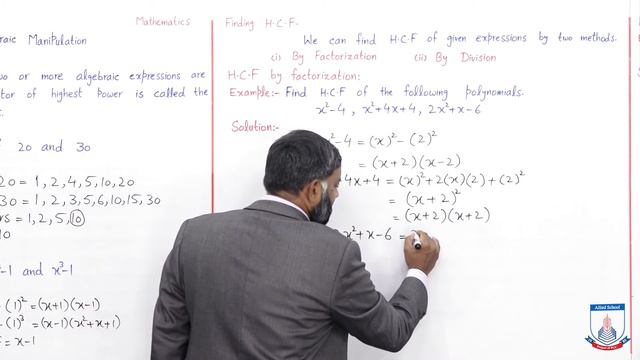 Mathematics
raic Manipulation
wo or more algebraic expressions are
tor of highest power is called the
20 and 30
20 = 1, 2, 4, 5, 10, 20
30 = 1, 2, 3, 5, 6, 10, 15, 30
rs = 1, 2, 5, 10
10
-1 and x³-1
(1)² = (x+1)(x-1)
(1)³ = (x-1)(x²+x+1)
= x-1
Finding H.C.F-
We can find H.C.F of given expressions by two methods.
(i) By Factorization (ii) By Division
H.C.F by factorization:
Example:- Find H.C.F of the following polynomials.
x²-4 , x²+4x+4 , 2x²+x-6
Solution:-
²-4 = (x)² - (2)²
= (x+2)(x-2)
4x+4 = (x)²+2(x)(2)+(2)²
= (x+2)²
= (x+2)(x+2)
x²+x-6 =
Allied School